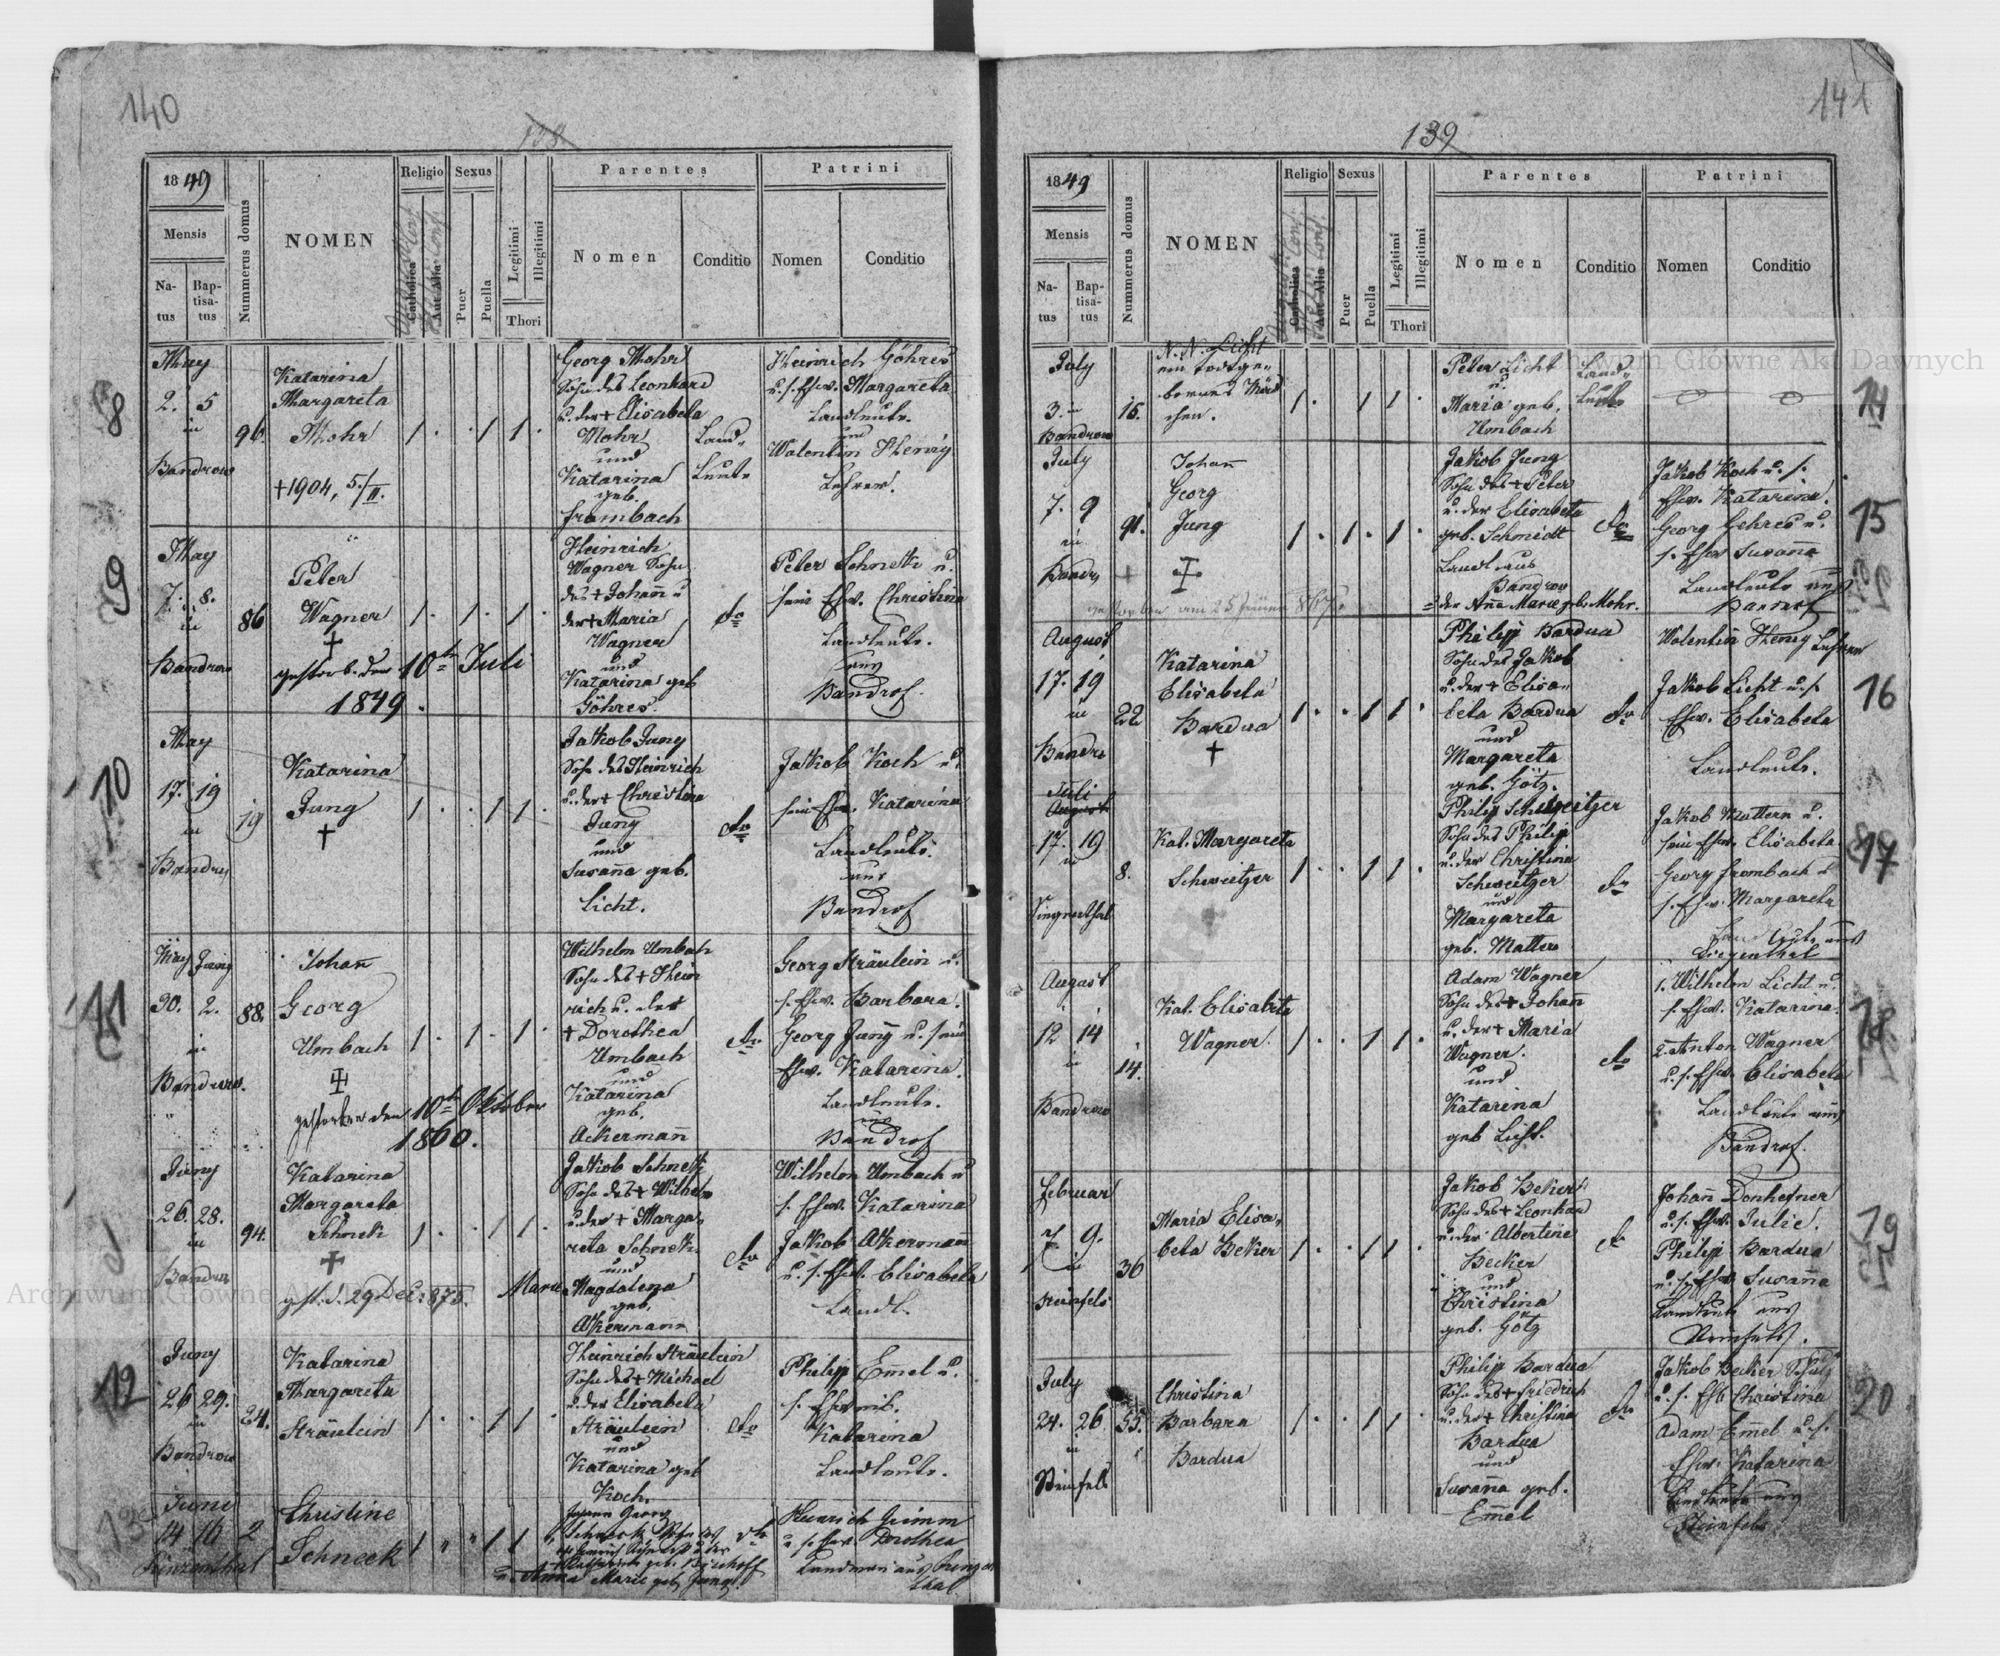 140
138
1849
Mensis
Na-
tus
Bap-
tisa-
tus
Nummerus domus
NOMEN
Religio
Catholica
Aut Alia
Sexus
Puer
Puella
Legitimi
Illegitimi
Thori
Parentes
Nomen
Conditio
Patrini
Nomen
Conditio
8
May
2. 5
in
Bandrow
96
Katarina
Margareta
Mohr
+1904, 5./II.
1 . . 1 1 .
Georg Mohr
Sohn des Leonhard
u. der + Elisabeta
Mohr
und
Katarina
geb.
Frombach
Land-
Leute
Heinrich Göhres
u. s. Ehew. Margareta
Landleute.
und
Valentin Henig
Lehrer.
9
May
7. 8.
in
Bandrow
86
Peter
Wagner
+
gestorb. den 10te Juli
1849.
1 . 1 . 1 .
Heinrich
Wagner Sohn
des + Johañ u
der + Maria
Wagner
und
Katarina geb
Göhres.
do
Peter Schneik u.
sein Ehew. Christina
Landleute.
aus
Bandrof.
10
May
17. 19
in
Bandrow
19
Katarina
Jung
+
1 . . 1 1 .
Jakob Jung
Sohn des Heinrich
u. der + Christina
Jung
und
Susaña geb.
Licht.
do
Jakob Koch u.
sein Ehew. Katarina
Landleute.
aus
Bandrof
11
May Juny
30. 2.
in
Bandrow.
88.
Johañ
Georg
Umbach
gestorben den 10te Oktober
1860.
1 . 1 . 1 .
Wilhelm Umbach
Sohn des + Hein
rich u. der
+ Dorothea
Umbach
und
Katarina
geb.
Ackermañ
do
Georg Sträulein u.
s. Ehew. Barbara.
Georg Jung u. sein
Ehew. Katarina.
Landleute.
aus
Bandrof
Juny
26. 28.
in
Bandrow
94.
Katarina
Margareta
Schneik
+
gest. d. 29 Dec. 1875.
1 . . 1 1 .
Jakob Schneik
Sohn des + Wilhelm
u. der + Marga-
reta Schneik.
und
Marie Magdalena
geb.
Akermann
do
Wilhelm Umbach u
s. Ehew. Katarina
Jakob Akermañ
u. s. Ehew. Elisabeta
Landl.
12
Juny
26 29.
in
Bandrow
24.
Katarina
Margareta
Sträulein
1 . . 1 1 .
Heinrich Sträulein
Sohn des + Michael
u. der Elisabeta
Sträulein
und
Katarina geb
Koch.
do
Philipp Emel u.
s. Eheweib.
Katarina
Landleute.
13
Juni
14 16
2
Christine
Schneck
Johann Georg
Schneck Sohn des
u. Anna Marie geb. Jung.
Heinrich Grimm
u. s. Ehew Dorothea
141
139
1849
Mensis
Na-
tus
Bap-
tisa-
tus
Nummerus domus
NOMEN
Religio
Catholica
Aut Alia
Sexus
Puer
Puella
Legitimi
Illegitimi
Thori
Parentes
Nomen
Conditio
Patrini
Nomen
Conditio
Archiwum Główne Akt Dawnych
July
3. in
Bandrow
16.
N. N. Licht
ein todtge-
bornes Mäd
chen.
1 . . 1 1 .
Peter Licht
u.
Maria geb.
Umbach
Land-
Leute
14
July
7. 9
in
Bandr
91.
Johañ
Georg
Jung
1 . 1 . 1 .
Jakob Jung
Sohn des + Peter
u. der Elisabeta
geb. Schmidt
Landl. aus
Bandrow
u der Aña Marie geb. Mohr.
do
Jakob Koch u. s.
Ehew. Katarina.
Georg Gehres u.
s. Ehew Susaña
Landleute aus
Bandrof
15
August
17. 19
in
Bandro
22
Katarina
Elisabeta
Bardua
+
1 . . 1 1 .
Philipp Bardua
Sohn des Jakob
u. der + Elisa-
beta Bardua
und
Margareta
geb. Götz.
do
Valentin Henig Lehrer
Jakob Licht u. s.
Ehew. Elisabeta
Landleute.
16
Juli
August
17. 19
in
Siegenthal
8.
Kat. Margareta
Schweitzer
1 . . 1 1 .
Philip Schweitzer
Sohn des Philip
u. der Christina
Schweitzer
und
Margareta
geb. Mattern
do
Jakob Mattern u.
sein Ehew. Elisabeta.
Georg Frombach u
s. Ehew. Margareta
Landleute aus
Siegenthal
17
August
12 14
in
Bandrow
14.
Kat. Elisabeta
Wagner
1 . . 1 1 .
Adam Wagner
Sohn des + Johañ
u. der + Maria
Wagner.
und
Katarina
geb Licht.
do
1. Wilhelm Licht u.
s. Ehew. Katarina.
2. Anton Wagner
u. s. Ehew Elisabeta
Landleute aus
Bandrof.
18
Februar
7 9.
in
Steinfels
36
Maria Elisa-
beta Beker
1 . . 1 1 .
Jakob Beker
Sohn des + Leonhard
u. der Albertine
Becker
und
Christina
geb. Götz
do
Johañ Donhefner
u. s. Ehew. Julie.
Philip Bardua
u. s. Ehew Susaña
Landleute aus
Steinfels.
19
July
24. 26
in
Steinfels
55.
Christina
Barbara
Bardua
1 . . 1 1 .
Philip Bardua
Sohn des + Friedrich
u. der + Christina
Bardua
und
Susaña geb.
Em̃el
do
Jakob Becker
u. s. Ehew Christina
Adam Em̃el u. s.
Ehew. Katarina
Landleute aus
Steinfels
20